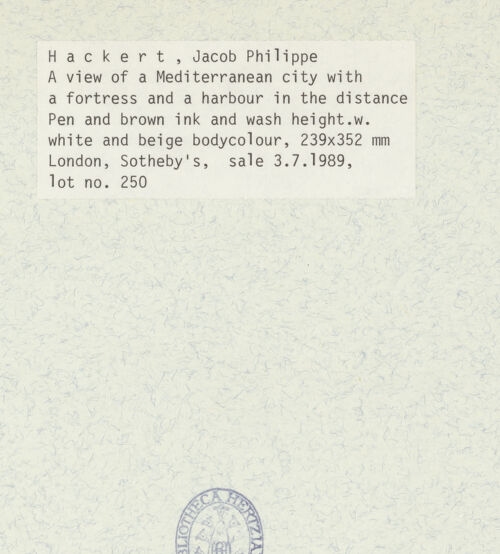 H a c k e r t , Jacob Philippe
A view of a Mediterranean city with
a fortress and a harbour in the distance
Pen and brown ink and wash height.w.
white and beige bodycolour, 239x352 mm
London, Sotheby's, sale 3.7.1989,
lot no. 250
BIBLIOTHECA HERTZIA